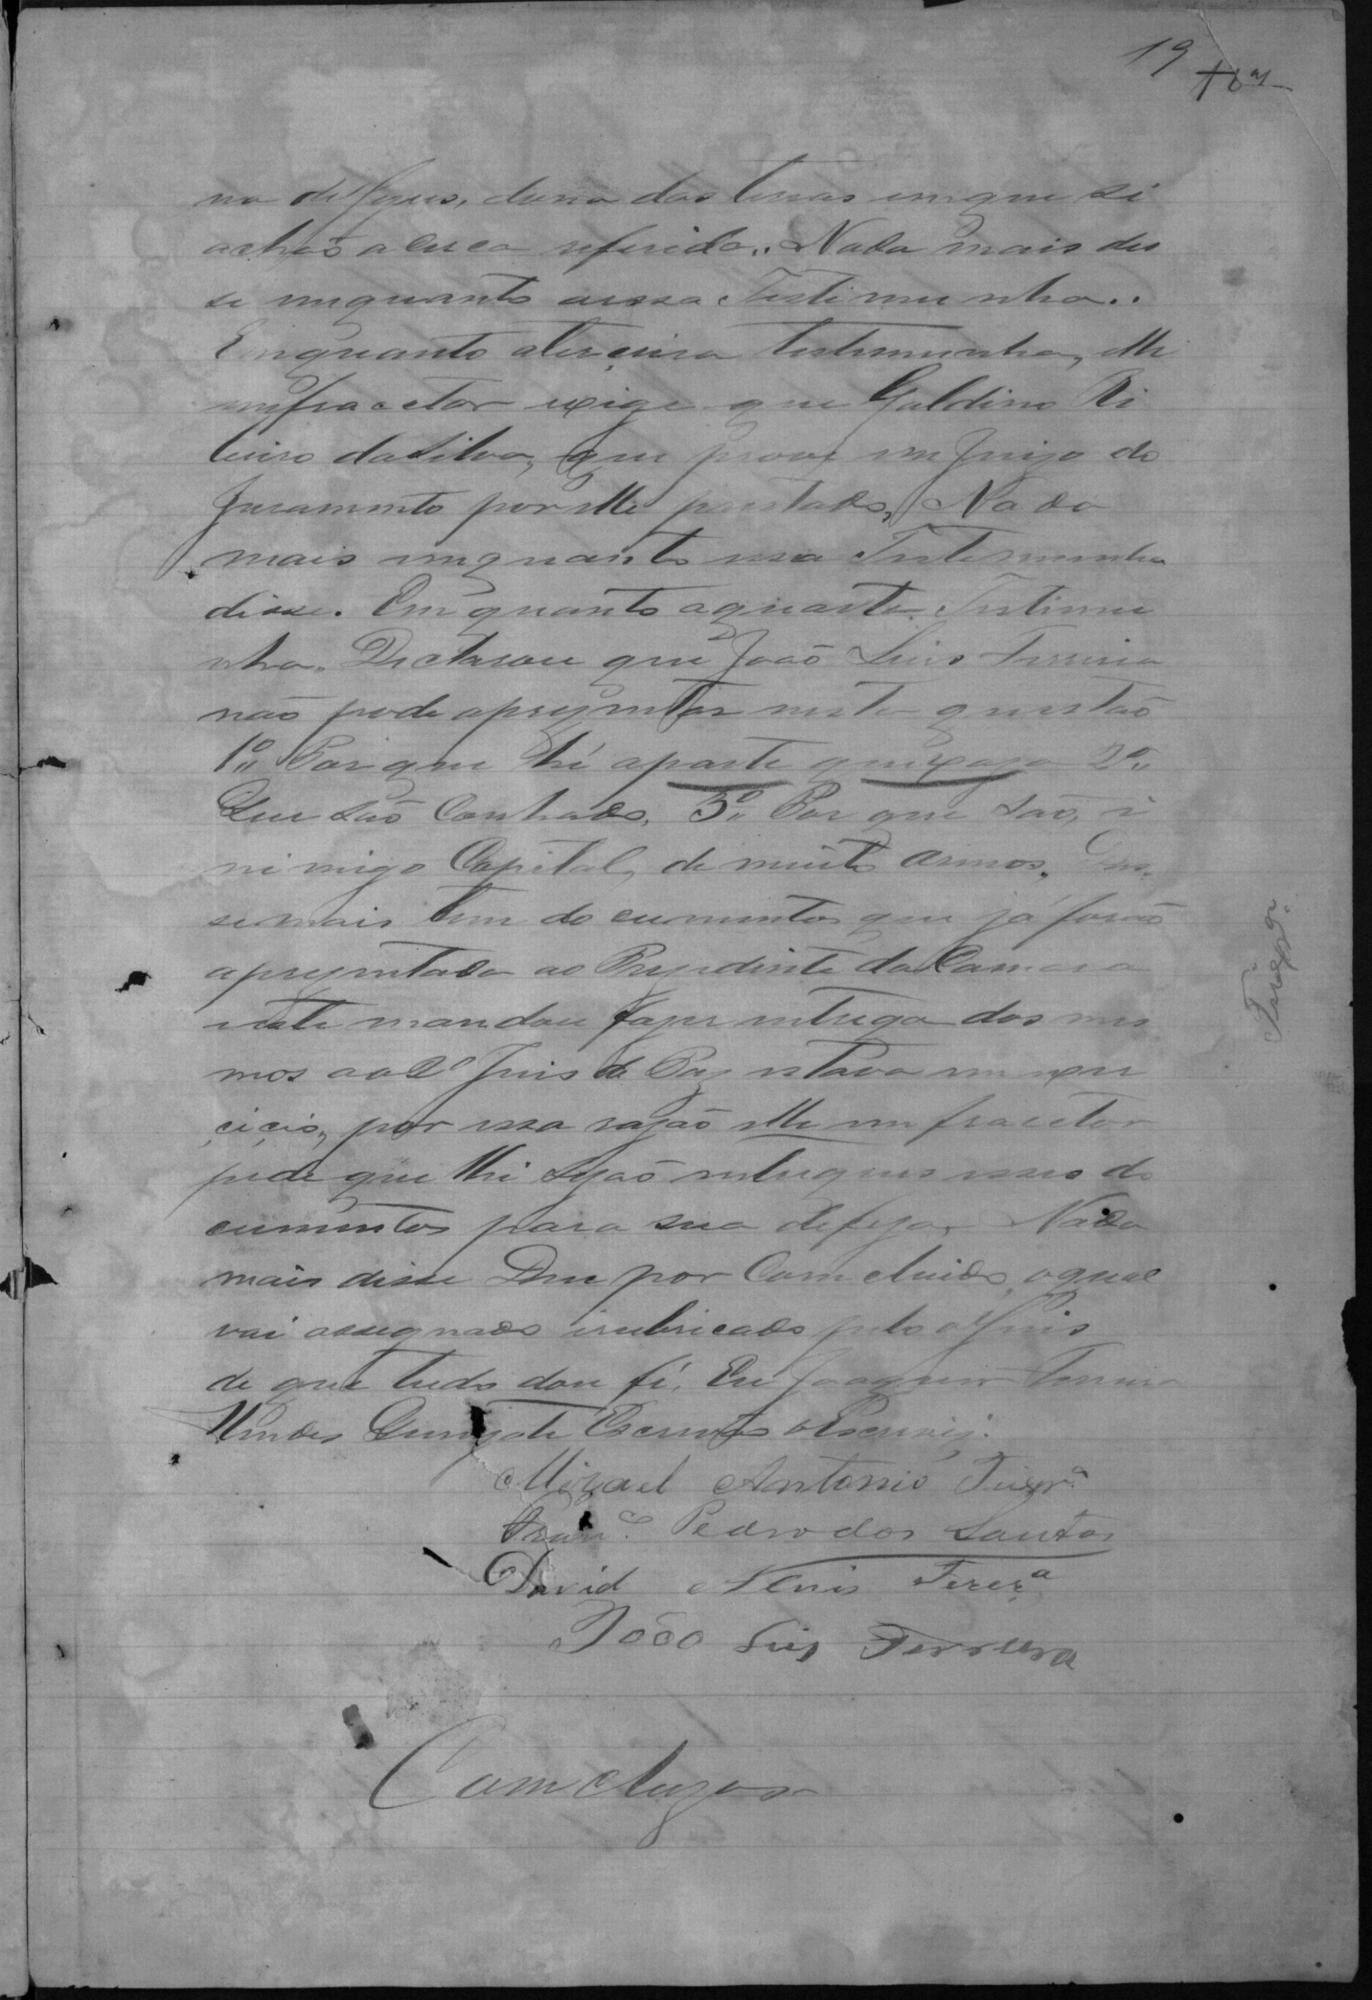 19
na de Jesus, dona das terras em que si
achão a cerca referida. Nada mais dis
se enquanto aessa Testimunha..
Emquanto aterceira testemunha, elle
emfractor exige que Galdino Ri
beiro da Silva, que prove em Juizo do
Juramento por elle prestado, Nada
mais emquanto essa Testemunha
disse. Em quanto aquarta Testimu
nha. Declarou que João Luis Ferreira
não pode apresentar nesta questão
1º Por que hé aparte queixosa 2º
Que são Conhado, 3º Por que são, i
nimigo Capital, de muito annos. Dis
semais tem documentos que já forão
apresentado ao Prezidente da Camara
este mandou fazer entrega dos mes
mos ao 2º Juis de Paz estava em exer
cicio, por essa razão elle emfractor
pede que lhi sejão entregues esses do
cumentos para sua defeza. Nada
mais disse Deu por Comcluido, oqual
vai assignado irubricado pelo Juis
de que tudo dou fé. Eu Joaquim Ferreira
Mendes Escrivão oEscrevij.
Mizael Antonio Teixrª
Franco Pedro dos Santos
David Ferrª
João Luis Ferreira
Comcluzão